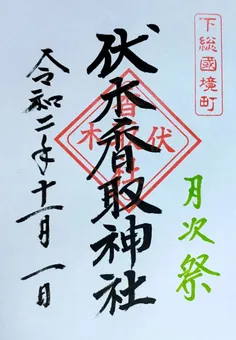 下総國境町
月次祭
伏木香取神社
令和二年十一月一日